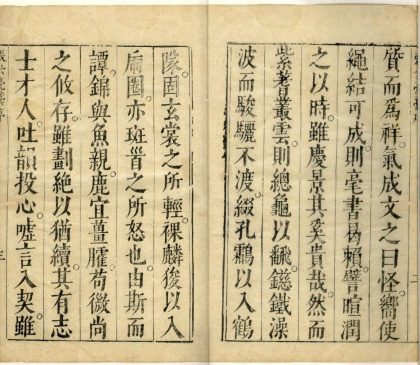 質而為祥氣成文之曰怪嚮使
繩結可成則毫書曷賴譬暄潤
之以時雖慶景其奚貴哉然而
紫著叢雲則總龜以飜鎡鐵澡
波而駿驪不渡綴孔鸘以入鶴
隊固玄裳之所輕裸麟後以入
扇圈亦斑晉之所怒也由斯而
譚錦與魚親鹿宜薑臛苟微尚
之攸存雖劃絕以猶續其有志
士才人吐韻投心噓言入契雖
三